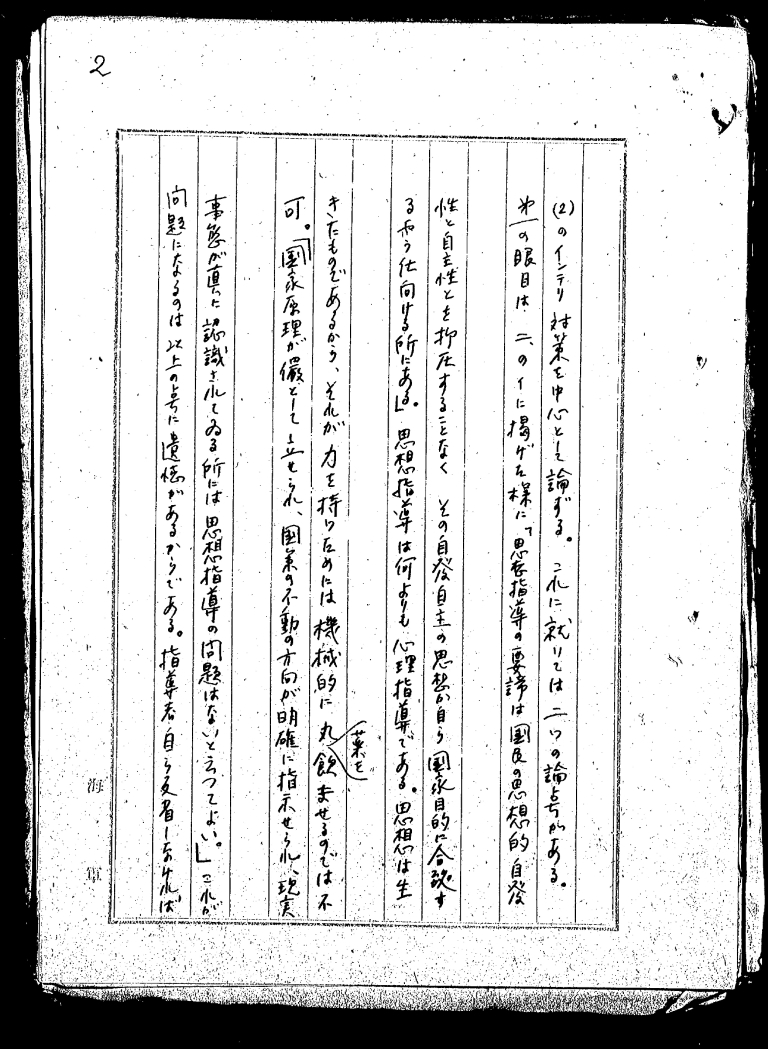 2
(2)のインテリ対策を中心として論ずる。これに就いては二つの論点がある。
第一の眼目は二、のイに掲げた様に「思想指導の要諦は国民の思想的自発
性と自主性とを抑圧することなく その自発自主の思想が自ら国家目的に合致す
るやう仕向ける所にある」。思想指導は何よりも心理指導である。思想は生
きたものであるから、それが力を持つためには機械的に丸飲ませるのでは不
薬を
可。「国家原理が儼として立せられ、国策の不動の方向が明確に指示せられ、現実
事態が真に認識されてゐる所には思想指導の問題はないと云つてよい。」これが
問題になるのは以上の点に遺憾があるからである。指導者自ら反省しなければ
海軍